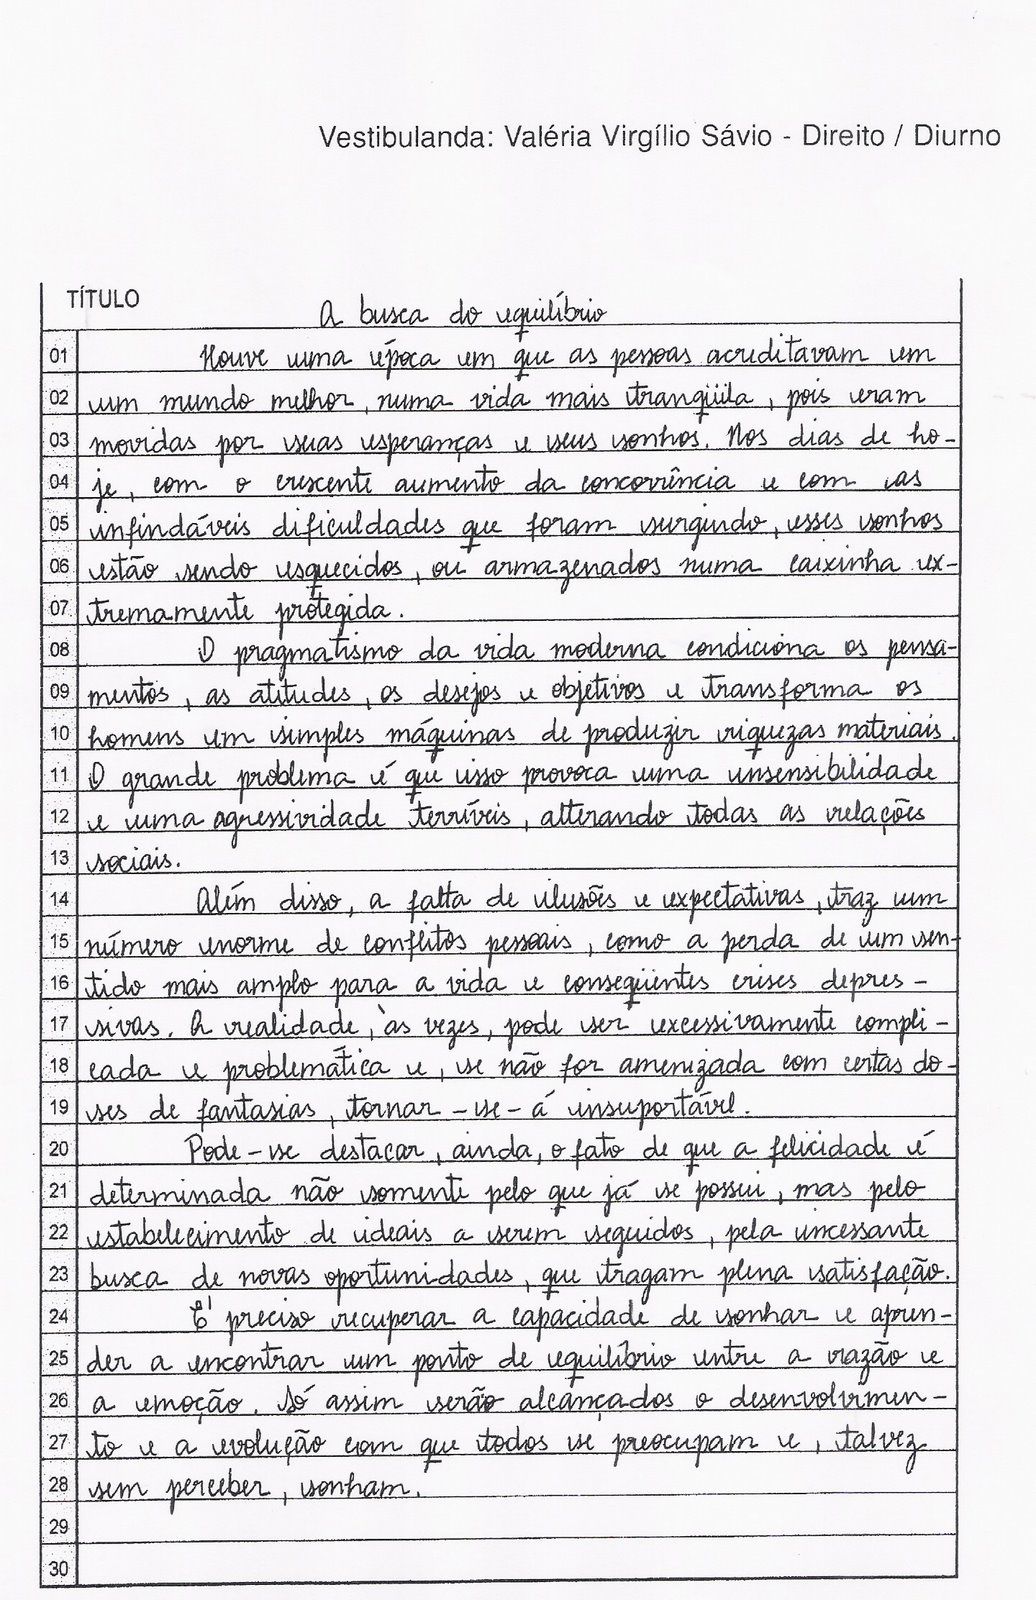 Vestibulanda: Valéria Virgílio Sávio - Direito / Diurno
TÍTULO A busca do equilíbrio
01 Houve uma época em que as pessoas acreditavam em
02 um mundo melhor, numa vida mais tranqüila, pois eram
03 movidas por suas esperanças e seus sonhos. Nos dias de ho-
04 je, com o crescente aumento da concorrência e com as
05 infindáveis dificuldades que foram surgindo, esses sonhos
06 estão sendo esquecidos, ou armazenados numa caixinha ex-
07 tremamente protegida.
08 O pragmatismo da vida moderna condiciona os pensa-
09 mentos, as atitudes, os desejos e objetivos e transforma os
10 homens em simples máquinas de produzir riquezas materiais.
11 O grande problema é que isso provoca uma insensibilidade
12 e uma agressividade terríveis, alterando todas as relações
13 sociais.
14 Além disso, a falta de ilusões e expectativas, traz um
15 número enorme de conflitos pessoais, como a perda de um sen-
16 tido mais amplo para a vida e conseqüentes crises depres-
17 sivas. A realidade, às vezes, pode ser excessivamente compli-
18 cada e problemática e, se não for amenizada com certas do-
19 ses de fantasias, tornar-se-á insuportável.
20 Pode-se destacar, ainda, o fato de que a felicidade é
21 determinada não somente pelo que já se possui, mas pelo
22 estabelecimento de ideais a serem seguidos, pela incessante
23 busca de novas oportunidades, que tragam plena satisfação.
24 É preciso recuperar a capacidade de sonhar e apren-
25 der a encontrar um ponto de equilíbrio entre a razão e
26 a emoção. Só assim serão alcançados o desenvolvimen-
27 to e a evolução com que todos se preocupam e, talvez
28 sem perceber, sonham.
29
30